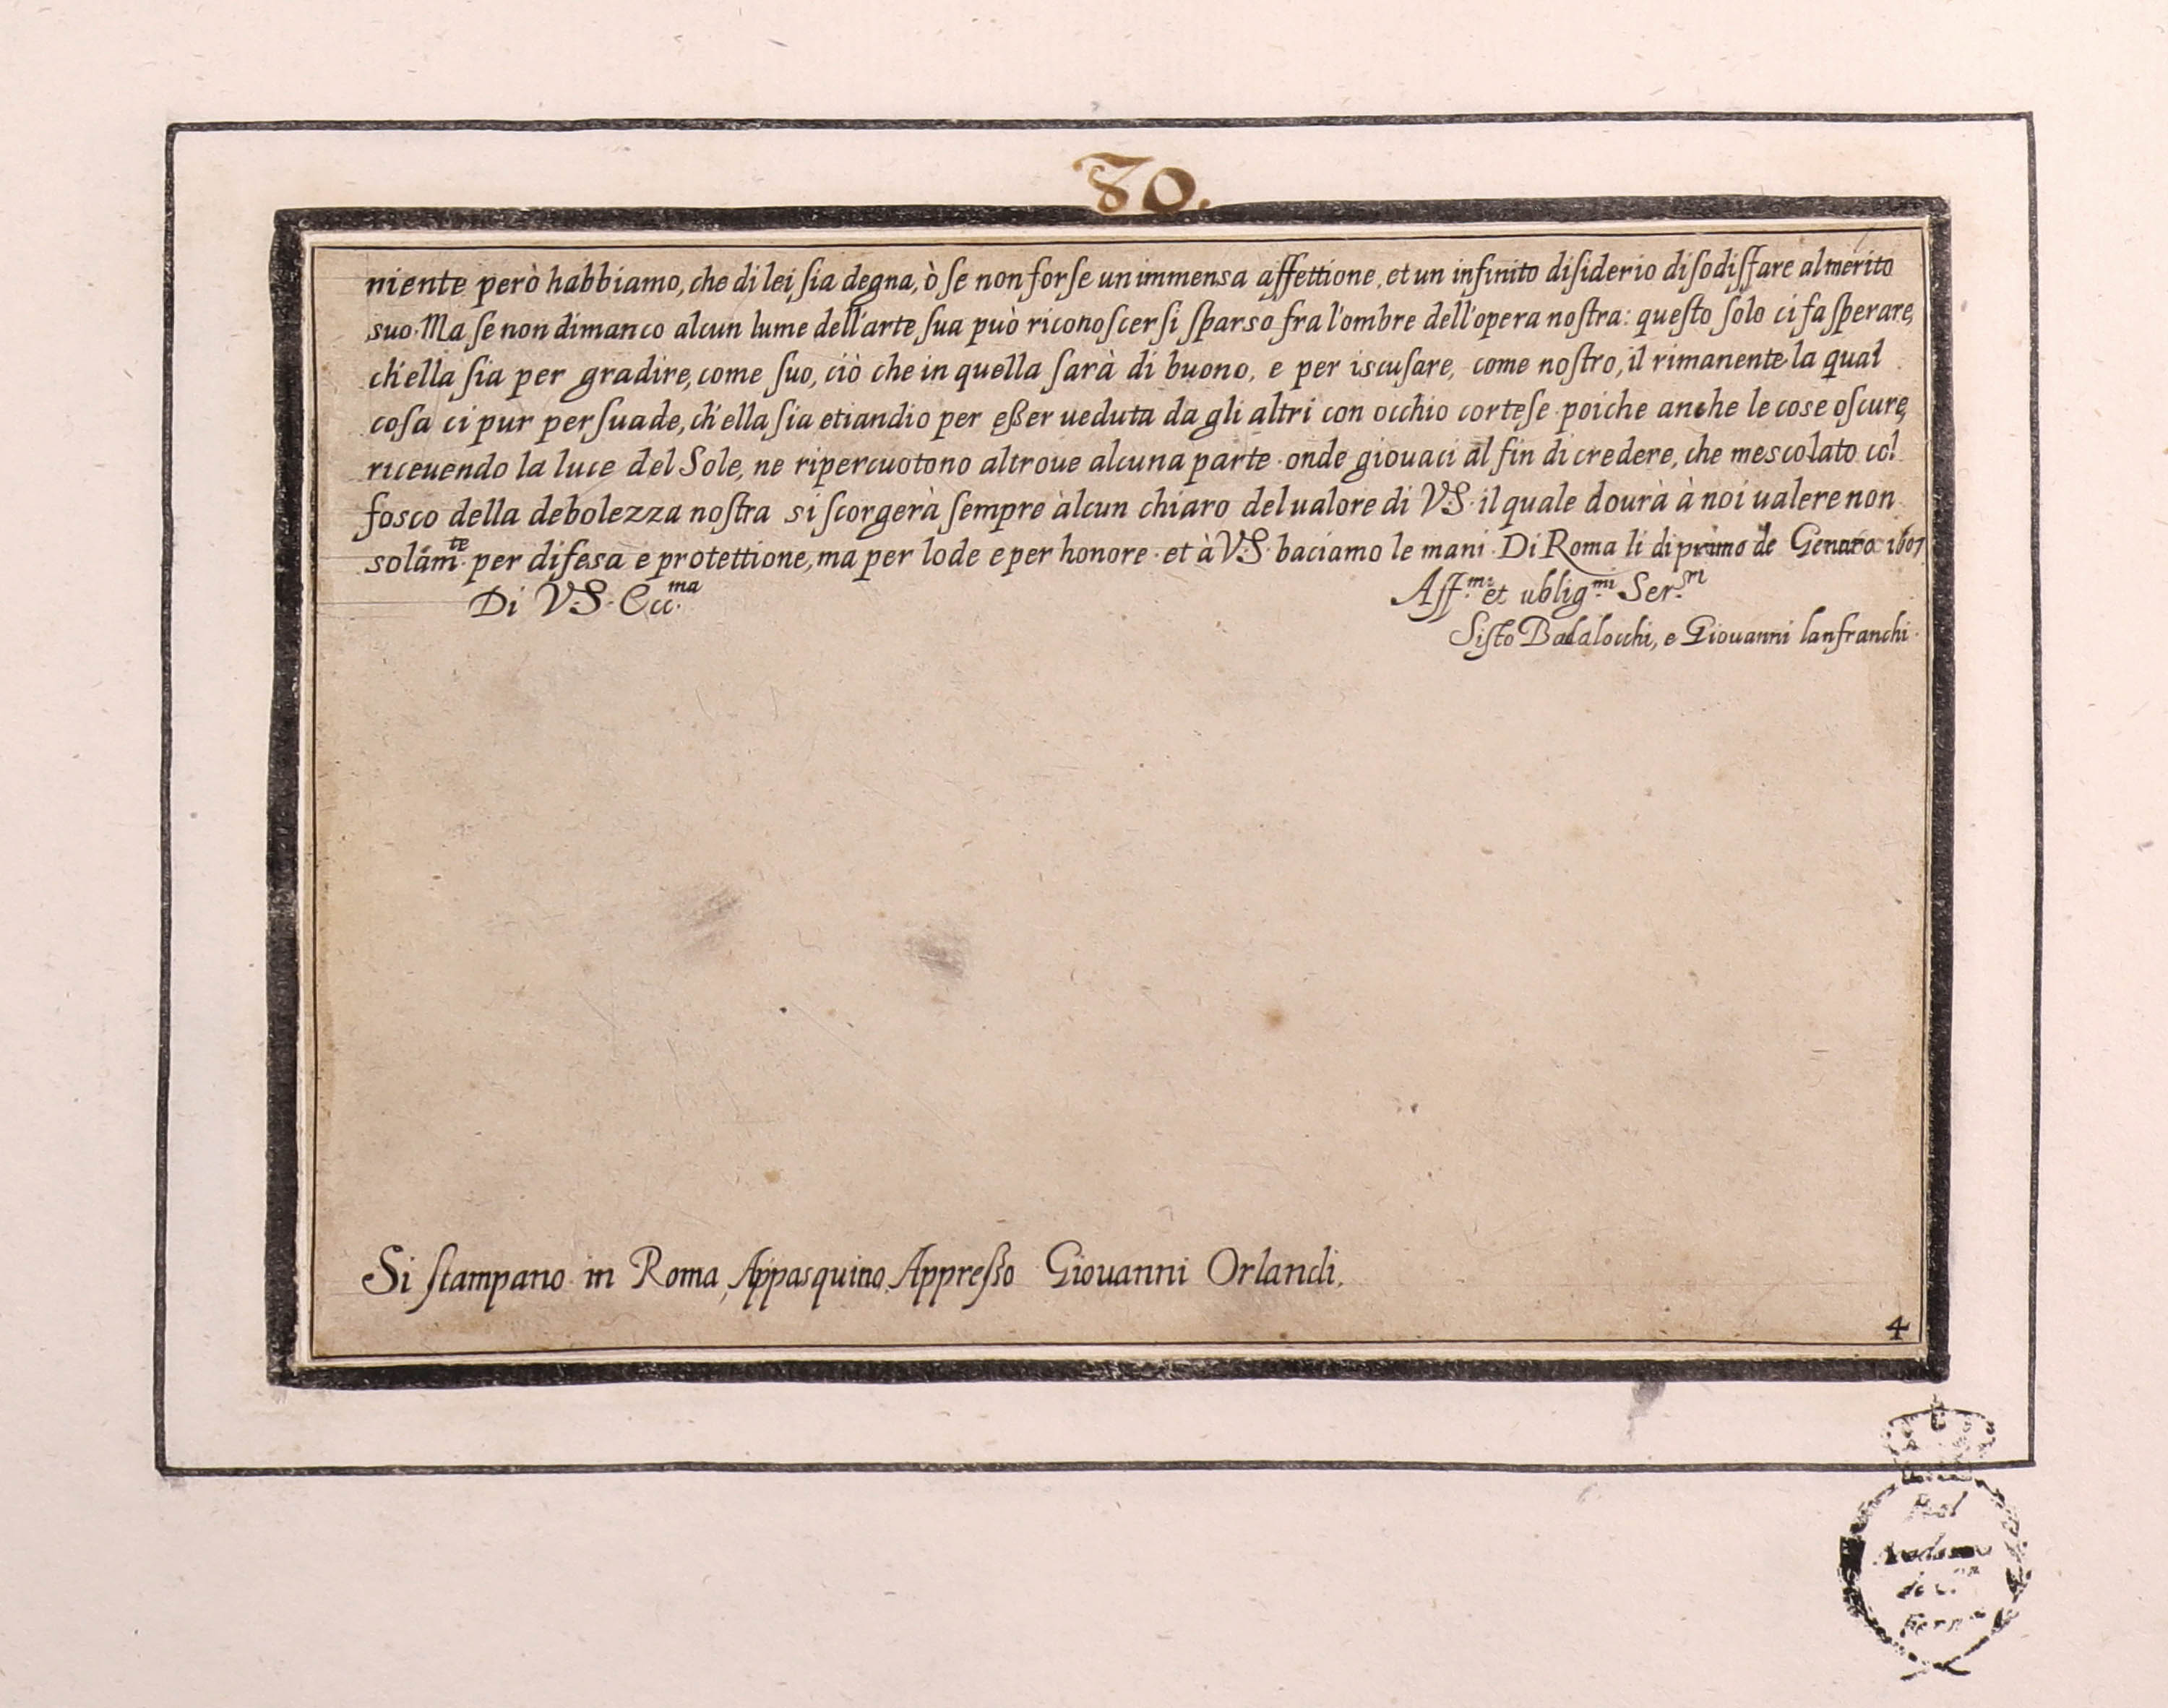 80.
niente però habbiamo, che di lei ſia degna, ò ſe non forſe un immensa affettione, et un infinito diſiderio di ſodiſfare al merito
suo. Ma ſe non dimanco alcun lume dell'arte ſua può riconoſcerſi ſparso fra l'ombre dell'opera noſtra: queſto ſolo ci fa ſperare,
ch'ella ſia per gradire, come ſuo, ciò che in quella ſarà di buono, e per iscuſare, come noſtro, il rimanente. la qual
coſa ci pur perſuade, ch'ella ſia etiandio per eßer ueduta da gli altri con occhio corteſe. poiche anche le cose oſcure,
riceuendo la luce del Sole, ne ripercuotono altroue alcuna parte. onde giouaci al fin di credere, che mescolato col
fosco della debolezza noſtra si ſcorgerà ſempre àlcun chiaro del ualore di V.S. il quale dourà à noi ualere non
solám.te per difesa e protettione, ma per lode e per honore. et à V.S. baciamo le mani. Di Roma li di primo de Genaro 1607
Di V.S. Ecc.ma
Aff.mi et ublig.mi Ser.ri
Siſto Badalocchi, e Giouanni lanfranchi.
Si ſtampano in Roma, Appasquino, Appreſßo Giouanni Orlandi.
4
Real
Academia
de S.n
Fern.do